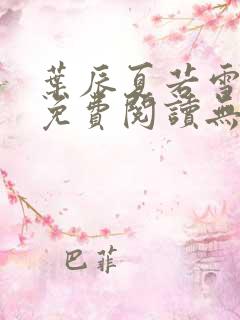 葉辰夏若雪
免費閱讀無
巴菲